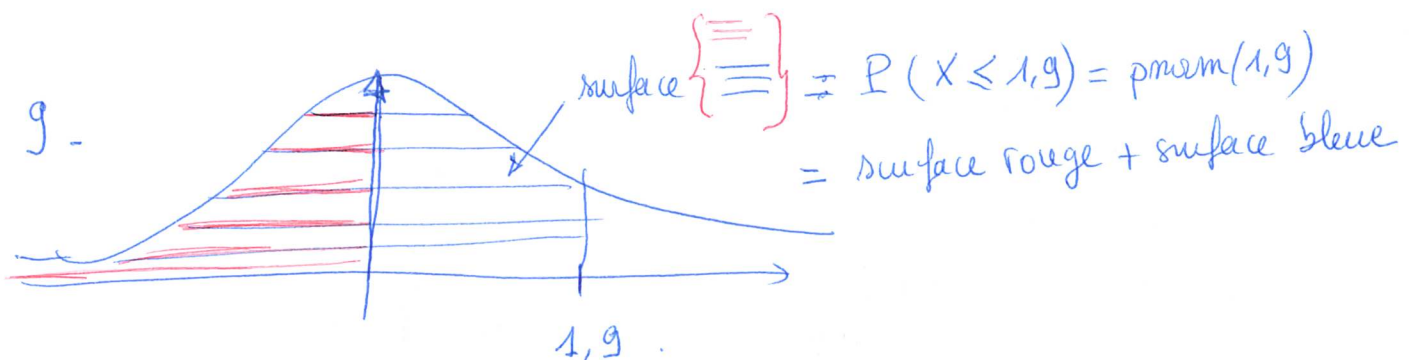 surface { } = P ( X ≤ 1,9) = pnorm(1,9)
9 -
= surface rouge + surface bleue
1,9 .